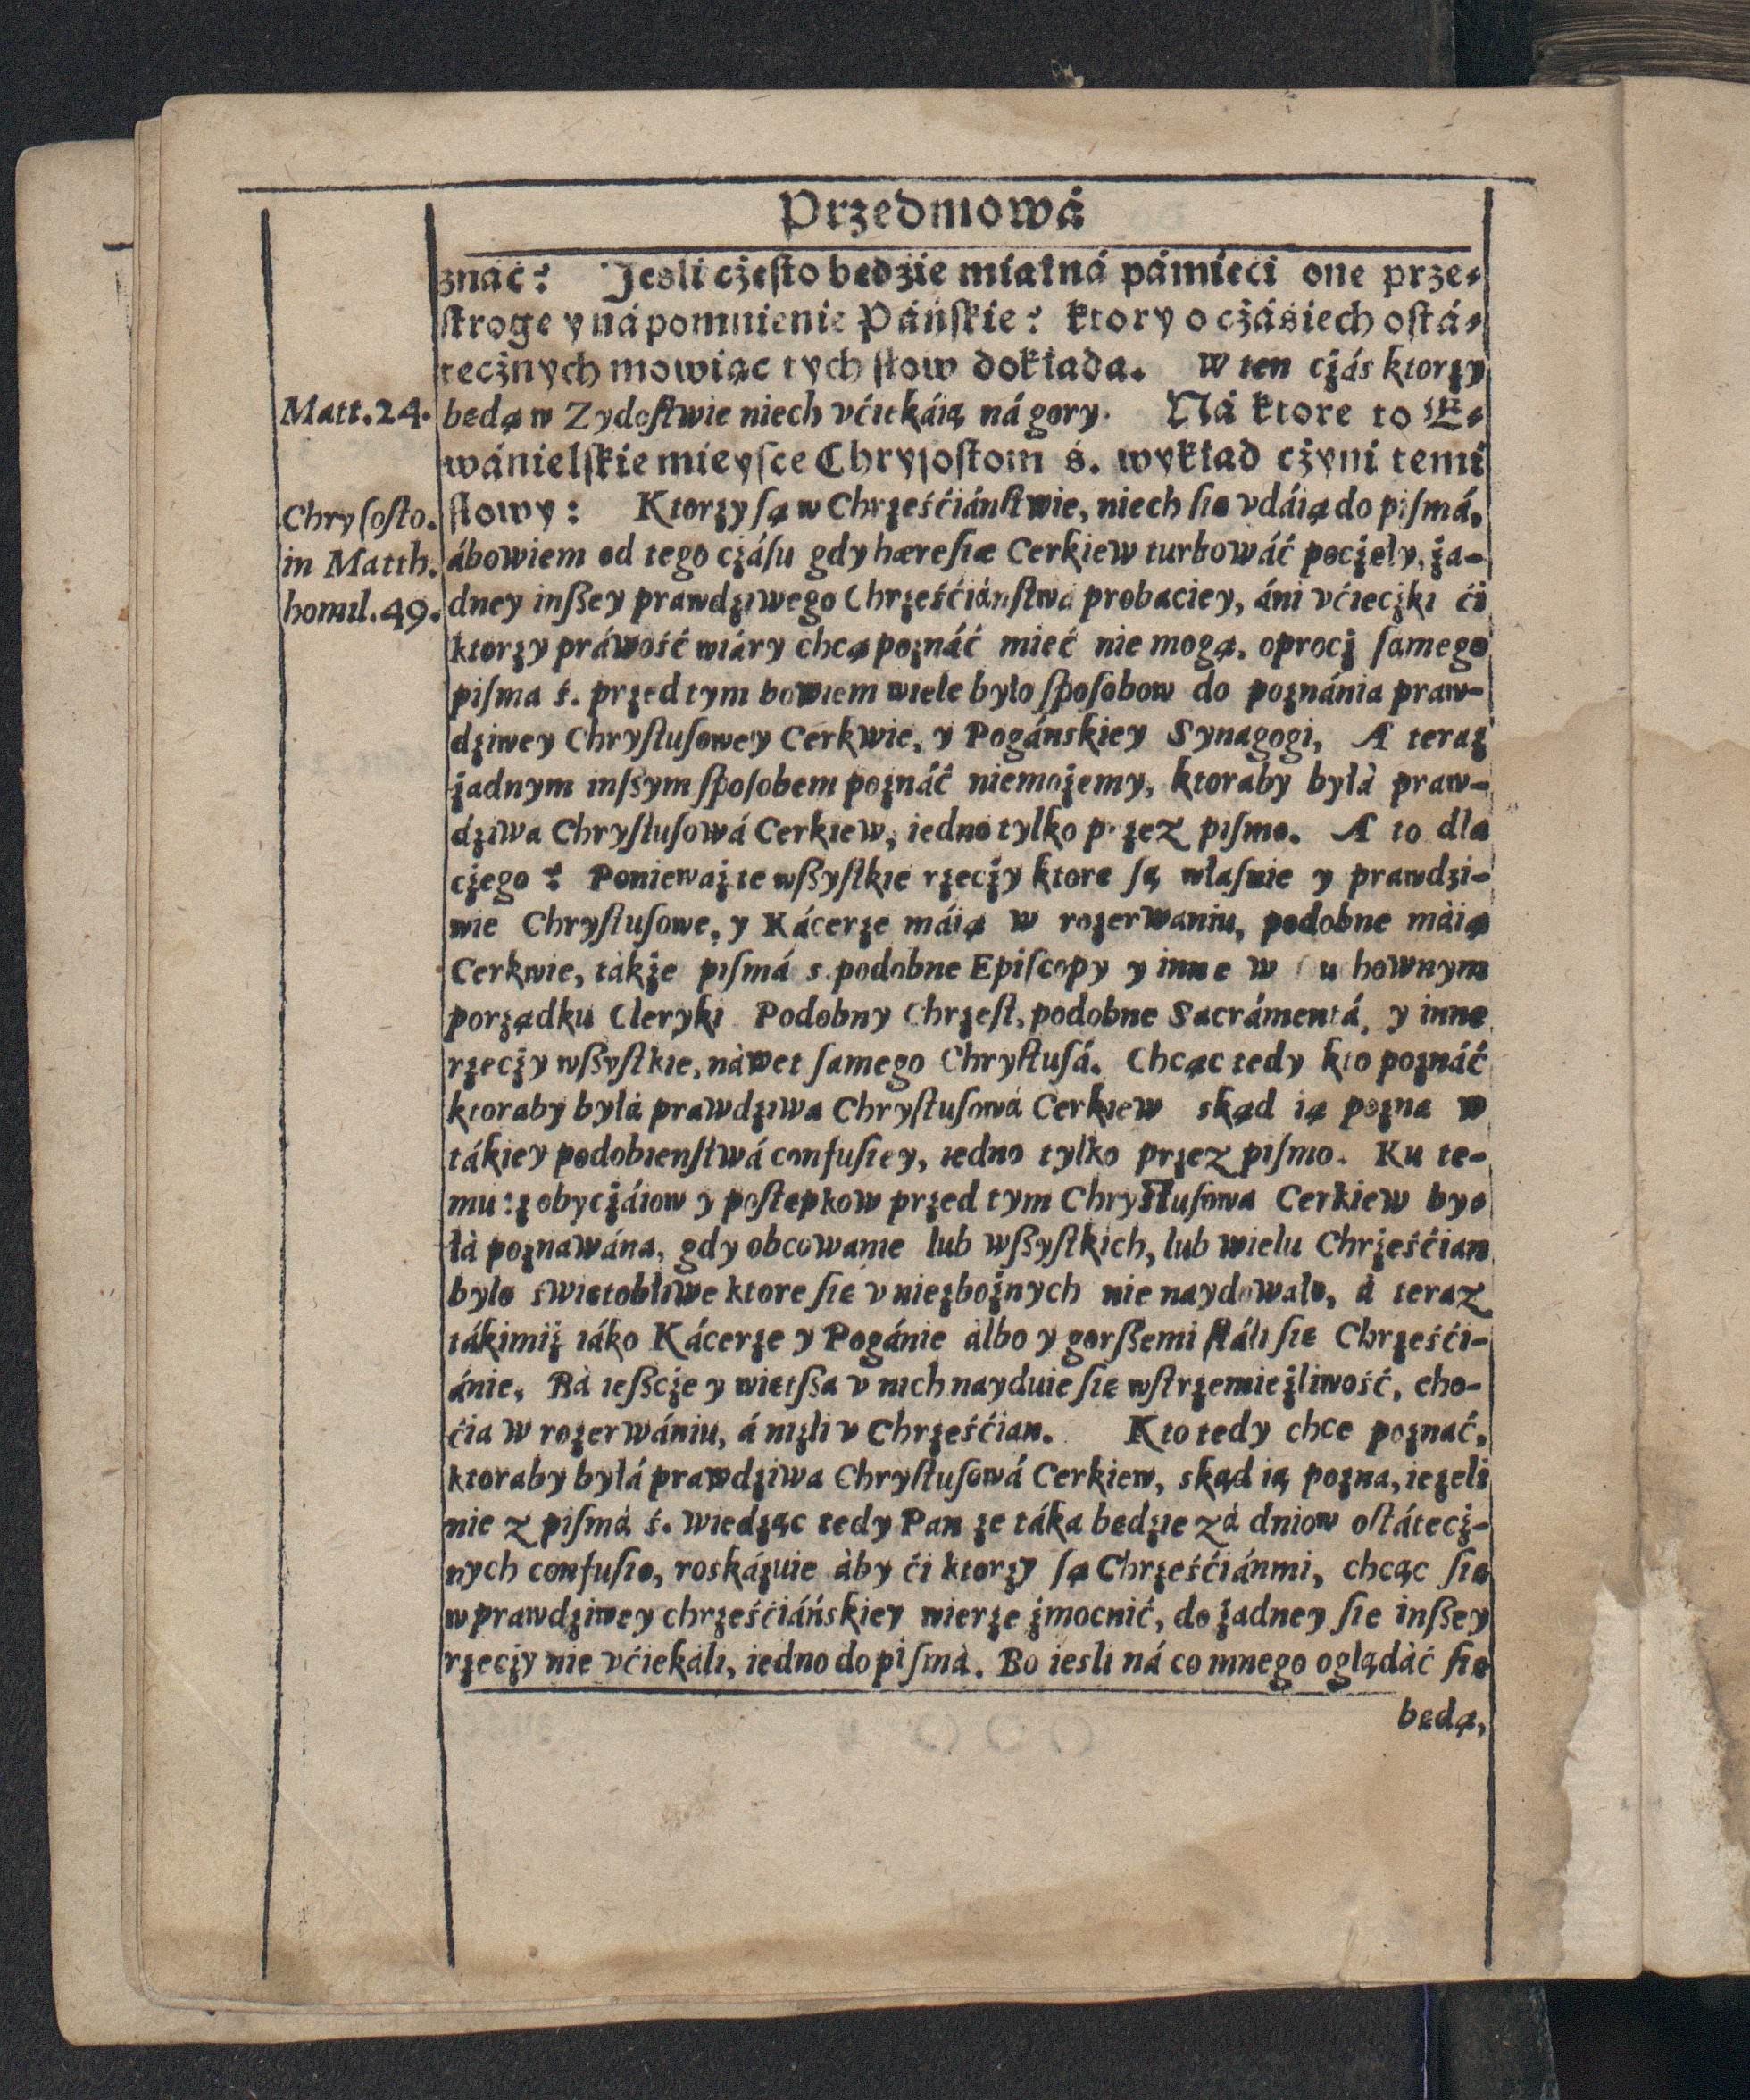 Przedmowá
znáć? Jesli cżęsto będzie miał ná pámięci onę prze-
strogę y nápomnienie Páńskie? ktory o cżáśiech ostá-
tecżnych mowiąc tych słow dokłada. W ten cżás ktorzy
Matt. 24.
będą w Zydostwie niech vćiekáią ná gory. Ná ktore to E-
wánielskie mieysce Chryzostom ś. wykład cżyni temi
Chrysosto.
in Matth.
homil. 49.
słowy: Ktorzy są w Chrześćiánstwie, niech się vdáią do pismá,
ábowiem od tego cżásu gdy hæresiæ Cerkiew turbowáć pocżęły, ża-
dney inßey prawdziwego Chrześćiánstwa probaciey, áni vćiecżki ći
ktorzy práwość wiáry chcą poznáć mieć nie mogą, oprocż samego
pisma ś. przed tym bowiem wiele było sposobow do poznánia praw-
dziwey Chrystusowey Cerkwie, y Pogánskiey Synagogi, A teraz
żadnym inßym sposobem poznáć niemożemy, ktoraby byłà praw-
dziwa Chrystusowá Cerkiew, iedno tylko przez pismo. A to dla
cżego? Ponieważ te wßystkie rzecży ktore są własnie y prawdzi-
wie Chrystusowe, y Kácerze máią w rozerwaniu, podobne màią
Cerkwie, tàkże pismá s. podobne Episcopy y inne w Duchownym
porządku Cleryki Podobny Chrzest, podobne Sacrámentá, y inne
rzecży wßystkie, nàwet samego Chrystusá. Chcąc tedy kto poznáć
ktoraby byłà prawdziwa Chrystusowá Cerkiew skąd ią pozna w
tákiey podobienstwá confusiey, iedno tylko przez pismo. Ku te-
mu: z obycżáiow y postępkow przed tym Chrystusowa Cerkiew by-
łà poznawána, gdy obcowanie lub wßystkich, lub wielu Chrześćian
było świętobliwe ktore się v niezbożnych nie naydowało, à teraz
tákimiż iáko Kácerze y Pogánie àlbo y gorßemi stáli się Chrześći-
ánie, Bà ießcże y więtßa v nich nayduie się wstrzemięźliwość, cho-
ćia w rozerwániu, á niżli v Chrześćian. Kto tedy chce poznać,
ktoraby byłá prawdziwa Chrystusowá Cerkiew, skąd ią pozna, ieżeli
nie z pismà ś. Wiedząc tedy Pan że táka będzie zà dniow ostátecż-
nych confusio, roskázuie àby ći ktorzy są Chrześćiánmi, chcąc się
w prawdziwey chrześćiáńskiey wierze zmocnić, do żadney się inßey
rzecży nie vćiekáli, iedno do pismà. Bo iesli ná co innego oglądàć się
będą,